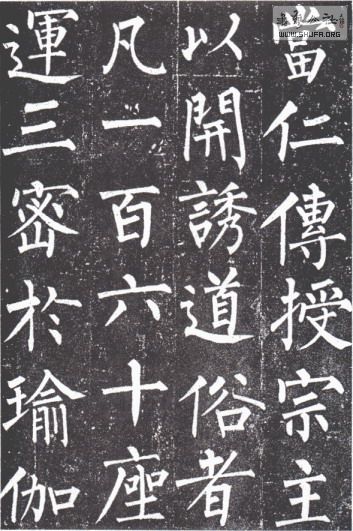 當仁傳授宗主
以開誘道俗者
凡一百六十座
運三密於瑜伽
WWW.SHUFA.ORG